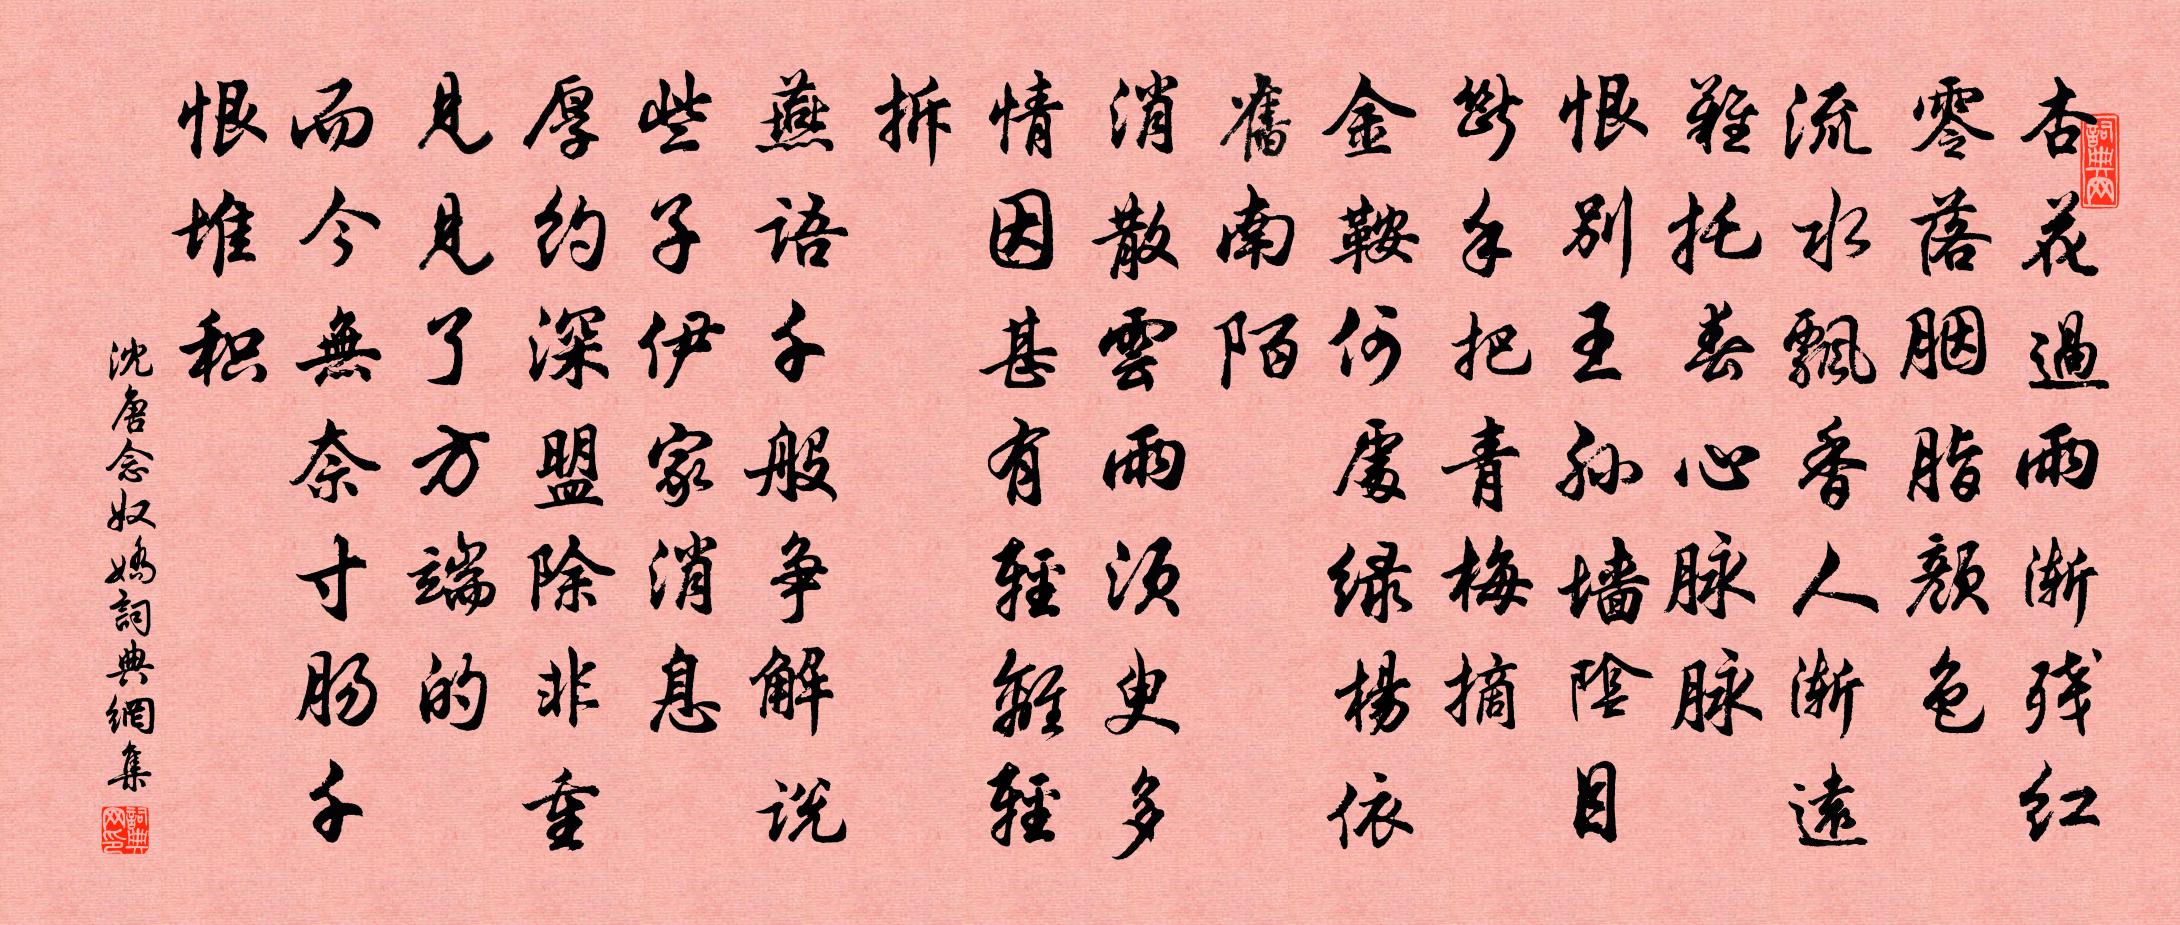 詞典网
杏花過雨漸残红
零落胭脂顔色
流水飄香人漸遠
難托春心脉脉
恨别王孙墙陰目
斷手把青梅摘
金鞍何處绿楊依
舊南陌
消散雲雨须臾多
情因甚有輕離輕
拆
燕語千般争解说
些子伊家消息
厚约深盟除非重
見見了方端的
而今無奈寸肠千
恨堆积
沈唐念奴嬌詞典網集
詞典网印